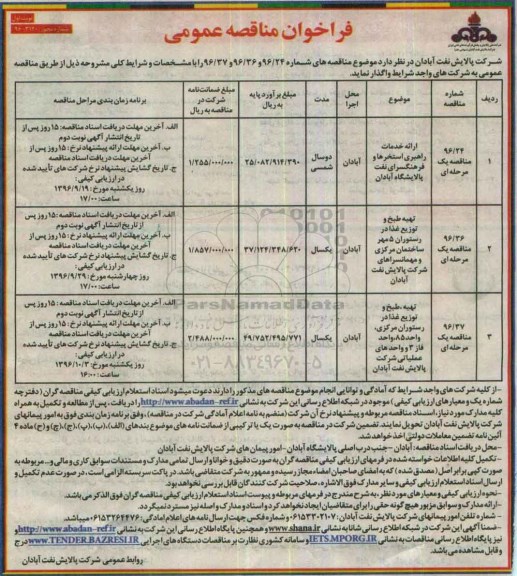 فراخوان مناقصه عمومی
شرکت پالایش نفت آبادان در نظر دارد موضوع مناقصه های شماره ۹۶/۲۴ و ۹۶/۳۶ و ۹۶/۳۷ را با مشخصات و شرایط کلی مشروحه ذیل از طریق مناقصه
عمومی به شرکت های واجد شرایط واگذار نماید.
ردیف | شماره مناقصه | موضوع | محل اجرا | مدت | مبلغ برآورد پایه به ریال | مبلغ ضمانت‌نامه شرکت در مناقصه به ریال | برنامه زمان بندی مراحل مناقصه
۱ | ۹۶/۲۴ مناقصه یک مرحله ای | ارائه خدمات راهبری استخرها و فرهنگسرای نفت پالایشگاه آبادان | آبادان | دوسال شمسی | ۲۵/۰۸۲/۹۱۴/۳۹۰ | ۱/۲۵۵/۰۰۰/۰۰۰
الف. آخرین مهلت دریافت اسناد مناقصه: ۱۵ روز پس از
تاریخ انتشار آگهی نوبت دوم
ب. آخرین مهلت ارائه پیشنهاد نرخ: ۱۵ روز پس از
آخرین مهلت دریافت اسناد مناقصه
ج. تاریخ گشایش پیشنهاد نرخ شرکت های تأیید شده
در ارزیابی کیفی:
روز یکشنبه مورخ: ۱۳۹۶/۹/۱۹
ساعت: ۱۷/۰۰
۲ | ۹۶/۳۶ مناقصه یک مرحله ای | تهیه طبخ و توزیع غذا در رستوران ۵ مهر ساختمان مرکزی و مهمانسراهای شرکت پالایش نفت آبادان | آبادان | یکسال | ۳۷/۱۲۴/۳۴۸/۶۳۰ | ۱/۸۵۷/۰۰۰/۰۰۰
الف. آخرین مهلت دریافت اسناد مناقصه: ۱۵ روز پس
از تاریخ انتشار آگهی نوبت دوم
ب. آخرین مهلت ارائه پیشنهاد نرخ: ۱۵ روز پس از
آخرین مهلت دریافت اسناد مناقصه
ج. تاریخ گشایش پیشنهاد نرخ شرکت های تأیید شده
در ارزیابی کیفی:
روز چهارشنبه مورخ: ۱۳۹۶/۹/۲۹
ساعت: ۱۷/۰۰
۳ | ۹۶/۳۷ مناقصه یک مرحله ای | تهیه، طبخ و توزیع غذا در رستوران مرکزی، واحد ۸۵، واحد فاز ۳ و واحدهای عملیاتی شرکت پالایش نفت آبادان | آبادان | یکسال | ۴۹/۷۵۲/۴۹۵/۷۷۱ | ۲/۴۸۸/۰۰۰/۰۰۰
الف. آخرین مهلت دریافت اسناد مناقصه: ۱۵ روز پس
از تاریخ انتشار آگهی نوبت دوم
ب. آخرین مهلت ارائه پیشنهاد نرخ: ۱۵ روز پس از
آخرین مهلت دریافت اسناد مناقصه
ج. تاریخ گشایش پیشنهاد نرخ شرکت های تأیید شده
در ارزیابی کیفی:
روز یکشنبه مورخ: ۱۳۹۶/۱۰/۳
ساعت: ۱۶:۰۰
ParsNamadData
۰۲۱-۸۸۳۴۹۶۷۰-۵
-از کلیه شرکت های واجد شرایط که آمادگی و توانایی انجام موضوع مناقصه های مذکور را دارند دعوت میشود اسناد استعلام ارزیابی کیفی مناقصه گران (دفترچه
شماره یک و معیارهای ارزیابی کیفی) موجود در شبکه اطلاع رسانی این شرکت به نشانی http://www.abadan-ref.ir را دریافت، پس از مطالعه و تکمیل به همراه
کلیه مدارک مورد نیاز، اسناد مناقصه مربوطه و پیشنهاد نرخ آن شرکت (منضم به نامه اعلام آمادگی شرکت در مناقصه)، وفق برنامه زمان بندی فوق به امور پیمانهای
شرکت پالایش نفت آبادان تحویل نمایند. تضمین شرکت در مناقصه به صورت یک یا ترکیبی از ضمانت نامه های موضوع بندهای (الف)، (ب)، (پ)، (ج)، (چ) و (ح) ماده ۴
آئین نامه تضمین معاملات دولتی اخذ خواهد شد.
-محل دریافت اسناد مناقصه: آبادان – جنب درب اصلی پالایشگاه آبادان – امور پیمان های شرکت پالایش نفت آبادان
-تکمیل کلیه اطلاعات خواسته شده در فرمهای ارزیابی کیفی مناقصه گران به صورت دقیق و خوانا و ارسال تمامی مدارک و مستندات سوابق کاری و مالی و... مربوطه به
صورت کپی برابر اصل (مصدق شده) که به امضای صاحبان امضاء مجاز رسیده و ممهور به شرکت متقاضی باشد، در پاکت سربسته الزامی است. در صورت عدم تکمیل و
ارسال اسناد استعلام ارزیابی کیفی و سایر مدارک فوق الاشاره، صلاحیت شرکت کنندگان قابل بررسی نخواهد بود.
-نحوه ارزیابی کیفی و معیارهای مورد نظر، به شرح مندرج در فرمهای مربوطه و پیوست اسناد استعلام ارزیابی کیفی مناقصه گران فوق الذکر می باشد.
-ارائه مدارک و سوابق مزبور هیچ گونه حقی را برای متقاضیان ایجاد نخواهد کرد و اسناد و مدارک واصله نیز مسترد نمیگردد.
-شماره تلفن امور پیمانهای شرکت پالایش نفت آبادان: ۰۶۱۵۳۳۰۲۱۰۷ و شماره فکس جهت ارسال نامه های اعلام آمادگی: ۰۶۱۵۳۲۶۴۴۷۶ میباشد.
-ضمنا آگهی این شرکت در شبکه اطلاع رسانی شانا به نشانی www.shana.ir و همچنین پایگاه اطلاع رسانی این شرکت به نشانی http://www.abadan-ref.ir و
نیز پایگاه اطلاع رسانی مناقصات به نشانی IETS.MPORG.IR و سامانه کشوری نظارت بر مناقصات دستگاه های اجرایی WWW.TENDER.BAZRESI.IR درج
و قابل مشاهده می باشد.
روابط عمومی شرکت پالایش نفت آبادان